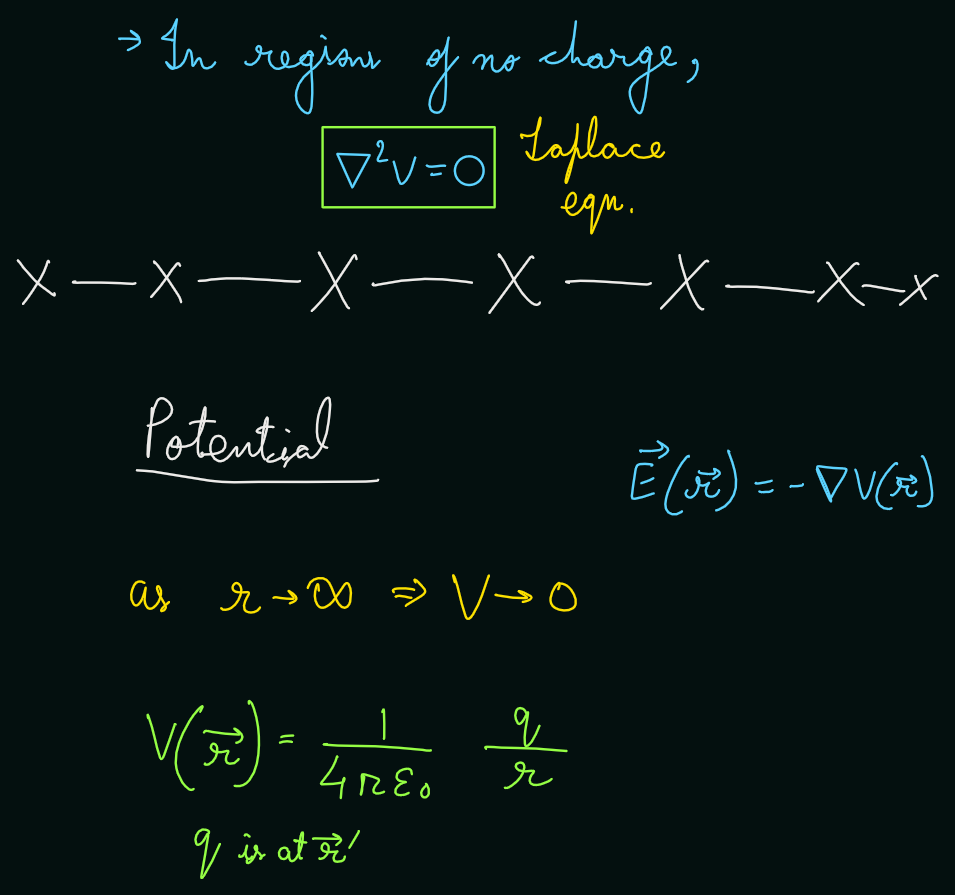 → In regions of no charge,
∇²V = 0 Laplace
eqn.
X — X — X — X — X — X — X
Potential
E⃗(r⃗) = -∇V(r⃗)
as r → ∞ ⇒ V → 0
V(r⃗) = 1/4πε₀ q/r
q is at r⃗′